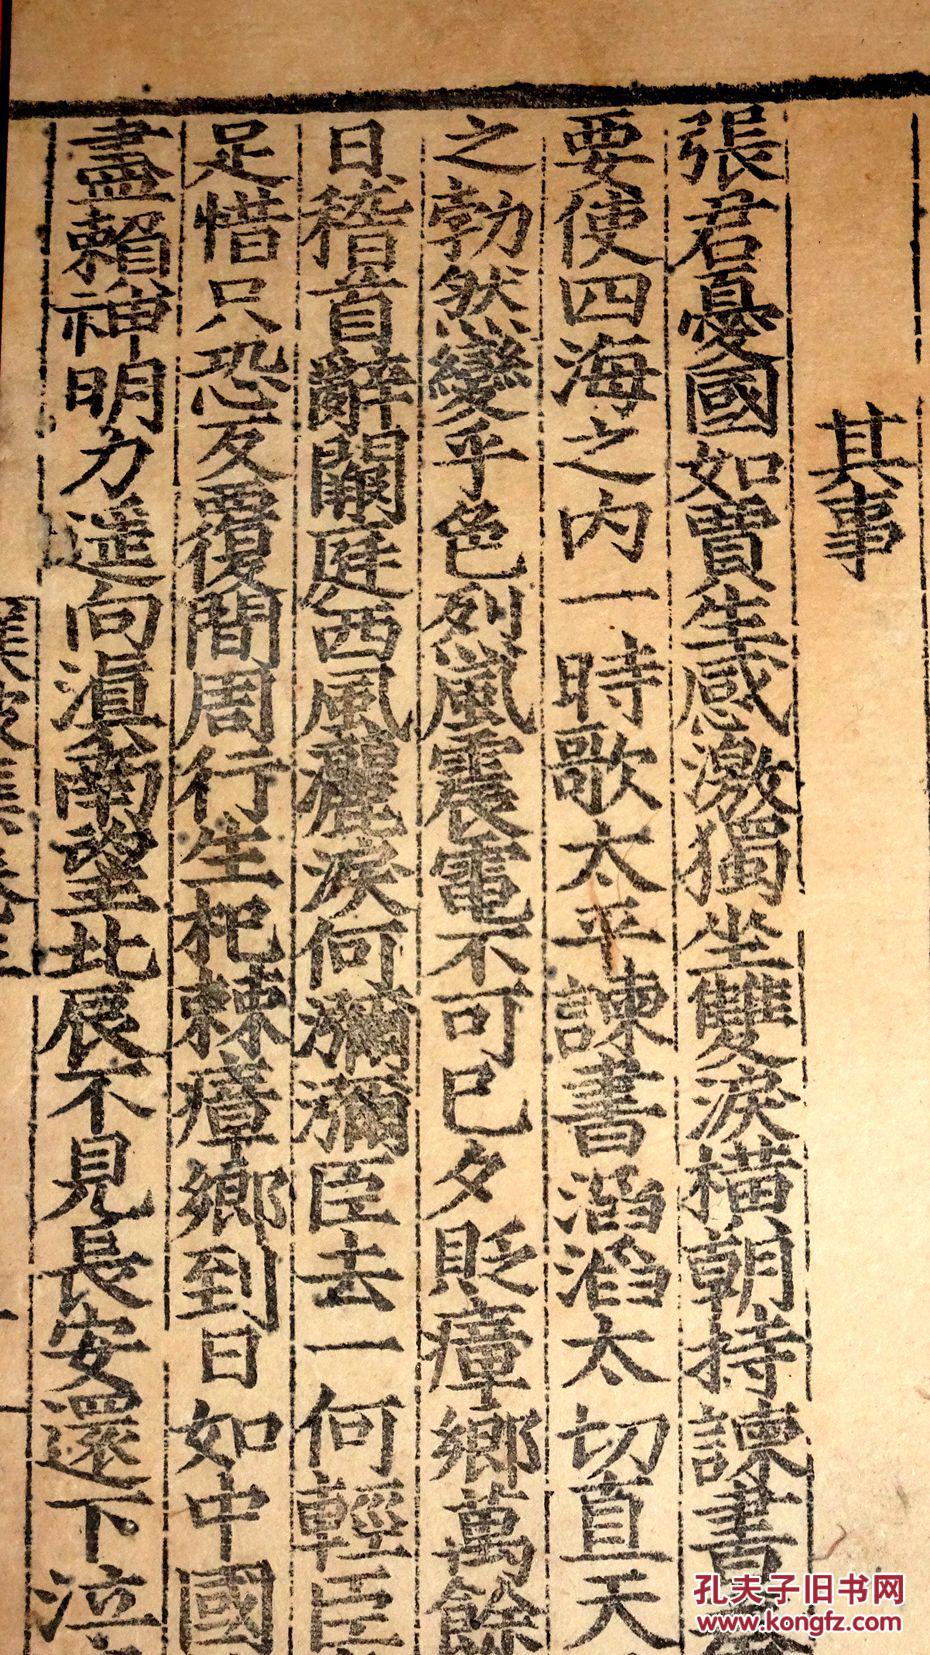 其事
張君憂國如賈生感激獨坐雙淚橫朝持諫書
要使四海之内一時歌太平諫書滔滔太切直天
之勃然變乎色烈風震電不可已夕貶瘴鄉萬餘
日稽首辭闕庭西風灑淚何瀰瀰臣去一何輕臣
足惜只恐反覆間周行生杞棘瘴鄉到日如中國
盡賴神明力遥向滇南望北辰不見長安還下泣
孔夫子旧书网
www.kongfz.com